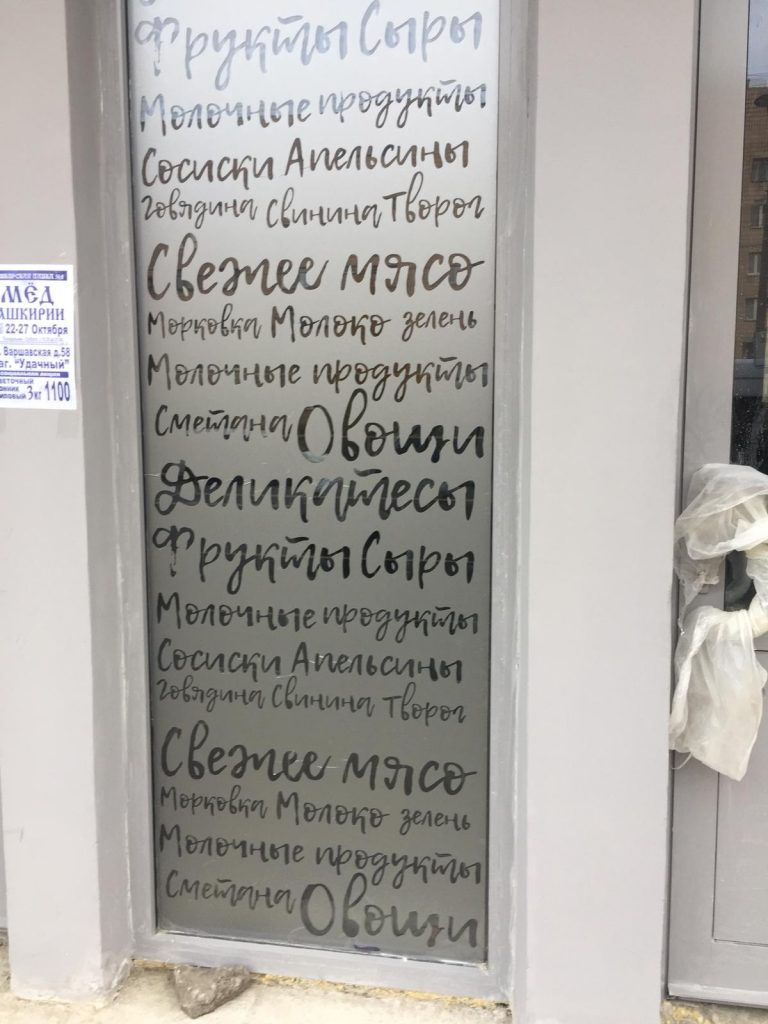 Фрукты Сыры
Молочные продукты
Сосиски Апельсины
говядина Свинина Творог
Свежее мясо
Морковка Молоко зелень
Молочные продукты
Сметана Овощи
Деликатесы
Фрукты Сыры
Молочные продукты
Сосиски Апельсины
говядина Свинина Творог
Свежее мясо
Морковка Молоко зелень
Молочные продукты
Сметана Овощи
МЁД
АШКИРИИ
22-27 Октября
. Варшавская д.58
аг. "Удачный"
3 кг 1100